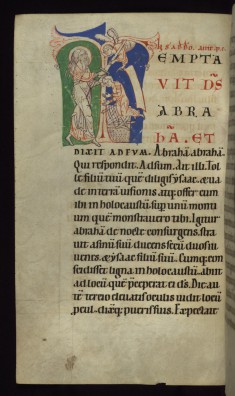 EMPTA
VIT DS
ABRA
HĀ. ET
DIXIT AD EUM. Abrahā abrahā.
Qui respondit. Adsum. Ait illi. Tol
le filiū tuū quē diligis ysaac. & ua
de in terrā uisionis. atq; offer eum
ibi in holocaustū sup unū montiū
quē monstrauero tibi. Igitur
abrahā de nocte consurgens. stra
uit asinū suū. ducens secū duos iu
uenes. & ysaac filiū suū. Cumq; con
cidisset ligna in holocaustū. abiit
ad locū quē pceperat ei ds. Die au
tē tercio eleuatis oculis uidit locū
pcul. dixitq; pueris suis. Expectate